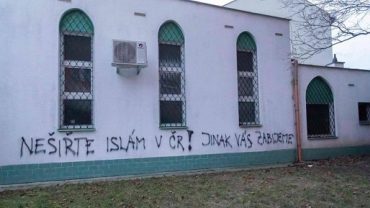 NEŠIRTE ISLÁM V ČR! JINAK VÁS ZABIJEME